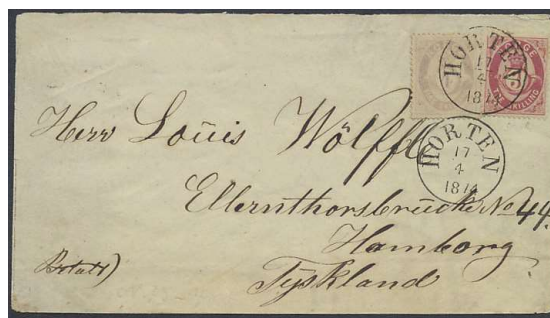 NORGE
HORTEN
17
4
1874
HORTEN
17
4
1874
Herr Louis Wölffel
Ellernthorsbrücke No 44.
Hamborg
Tyskland